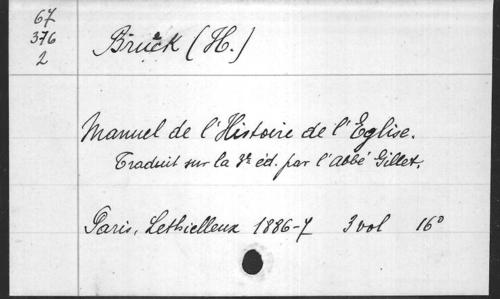 67
376
2
Brück (H.)
Manuel de l'Histoire de l'Eglise.
Traduit sur la 3e éd. par l'abbé Gillet.
Paris, Lethielleux 1886-7 3 vol 16°